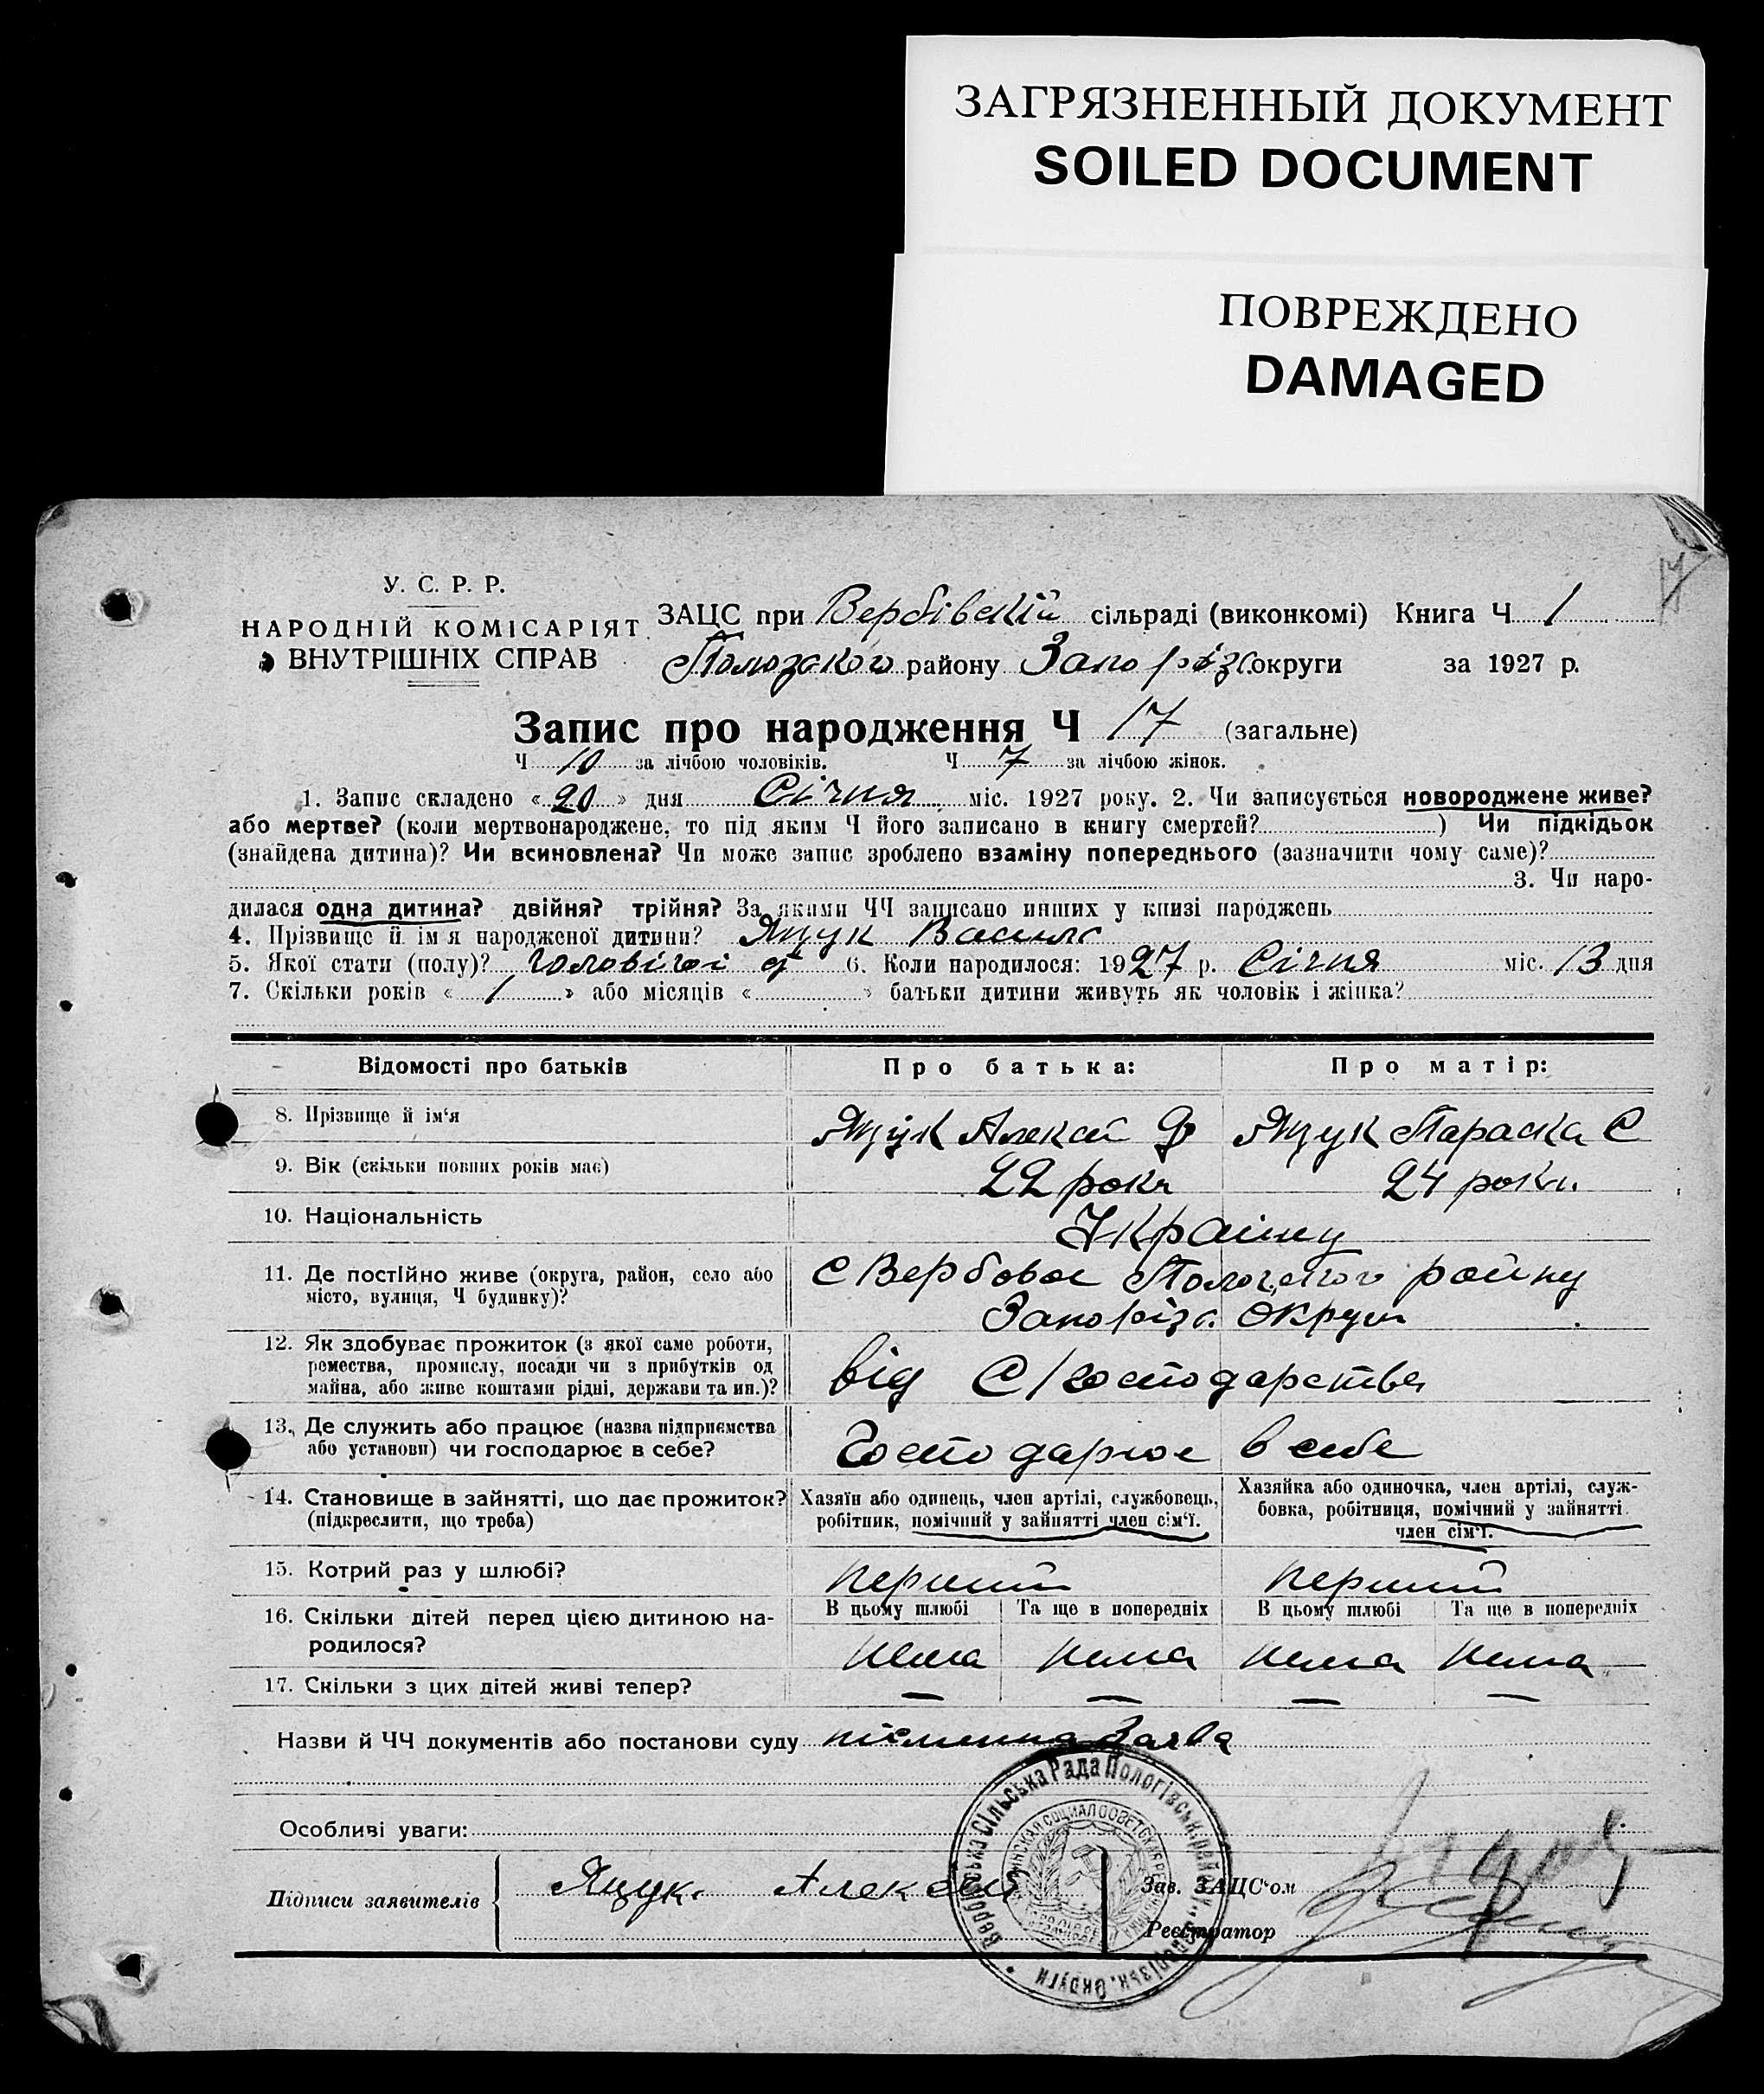 ЗАГРЯЗНЕННЫЙ ДОКУМЕНТ
SOILED DOCUMENT
ПОВРЕЖДЕНО
DAMAGED
17
У. С. Р. Р.
НАРОДНІЙ КОМІСАРІЯТ
ВНУТРІШНІХ СПРАВ
ЗАЦС при Вербівскій сільраді (виконкомі) Книга Ч 1
району Запоріз. округи за 1927 р.
Запис про народження Ч 17 (загальне)
Ч 10 за лічбою чоловіків. Ч 7 за лічбою жінок.
1. Запис складено « 20 » дня Січня міс. 1927 року. 2. Чи записується новороджене живе?
або мертве? (коли мертвонароджене, то під яким Ч його записано в книгу смертей? ) Чи підкідьок
(знайдена дитина)? Чи всиновлена? Чи може запис зроблено взаміну попереднього (зазначити чому саме)?
3. Чи наро-
дилася одна дитина? двійня? трійня? За якими ЧЧ записано инших у книзі народжень
4. Прізвище й ім я народженої дитини? Яцук Василь
5. Якої стати (полу)? чоловічої 6. Коли народилося: 1927 р. Січня міс. 13 дня
7. Скільки років « 1 » або місяців « » батьки дитини живуть як чоловік і жінка?
Відомості про батьків Про батька: Про матір:
8. Прізвище й ім‘я Яцук Алексій Ф Яцук Параска С
9. Вік (скільки повних років має) 22 роки 24 роки.
10. Національність Україну
11. Де постійно живе (округа, район, село або С Вербове Пологского району
місто, вулиця, Ч будинку)? Запоріз. Округи
12. Як здобуває прожиток (з якої саме роботи,
ремества, промислу, посади чи з прибутків од
майна, або живе коштами рідні, держави та ин.)? від С/господарства
13. Де служить або працює (назва підприємства
або установи) чи господарює в себе? Господарює в себе
14. Становище в зайнятті, що дає прожиток? Хазяїн або одинець, член артілі, службовець, Хазяйка або одиночка, член артілі, служ-
(підкреслити, що треба) робітник, помічний у зайнятті член сім‘ї. бовка, робітниця, помічний у зайнятті
член сім‘ї.
15. Котрий раз у шлюбі? перший перший
16. Скільки дітей перед цією дитиною на- В цьому шлюбі Та ще в попередніх В цьому шлюбі Та ще в попередніх
родилося? нема нема нема нема
17. Скільки з цих дітей живі тепер? — — — —
Назви й ЧЧ документів або постанови суду письменна Заява
Особливі уваги:
Підписи заявителів Яцук Алексій Зав. ЗАЦС‘ом
Реєстратор
Вербівська Сільська Рада Пологівськ. район. Запорізьк. Округи